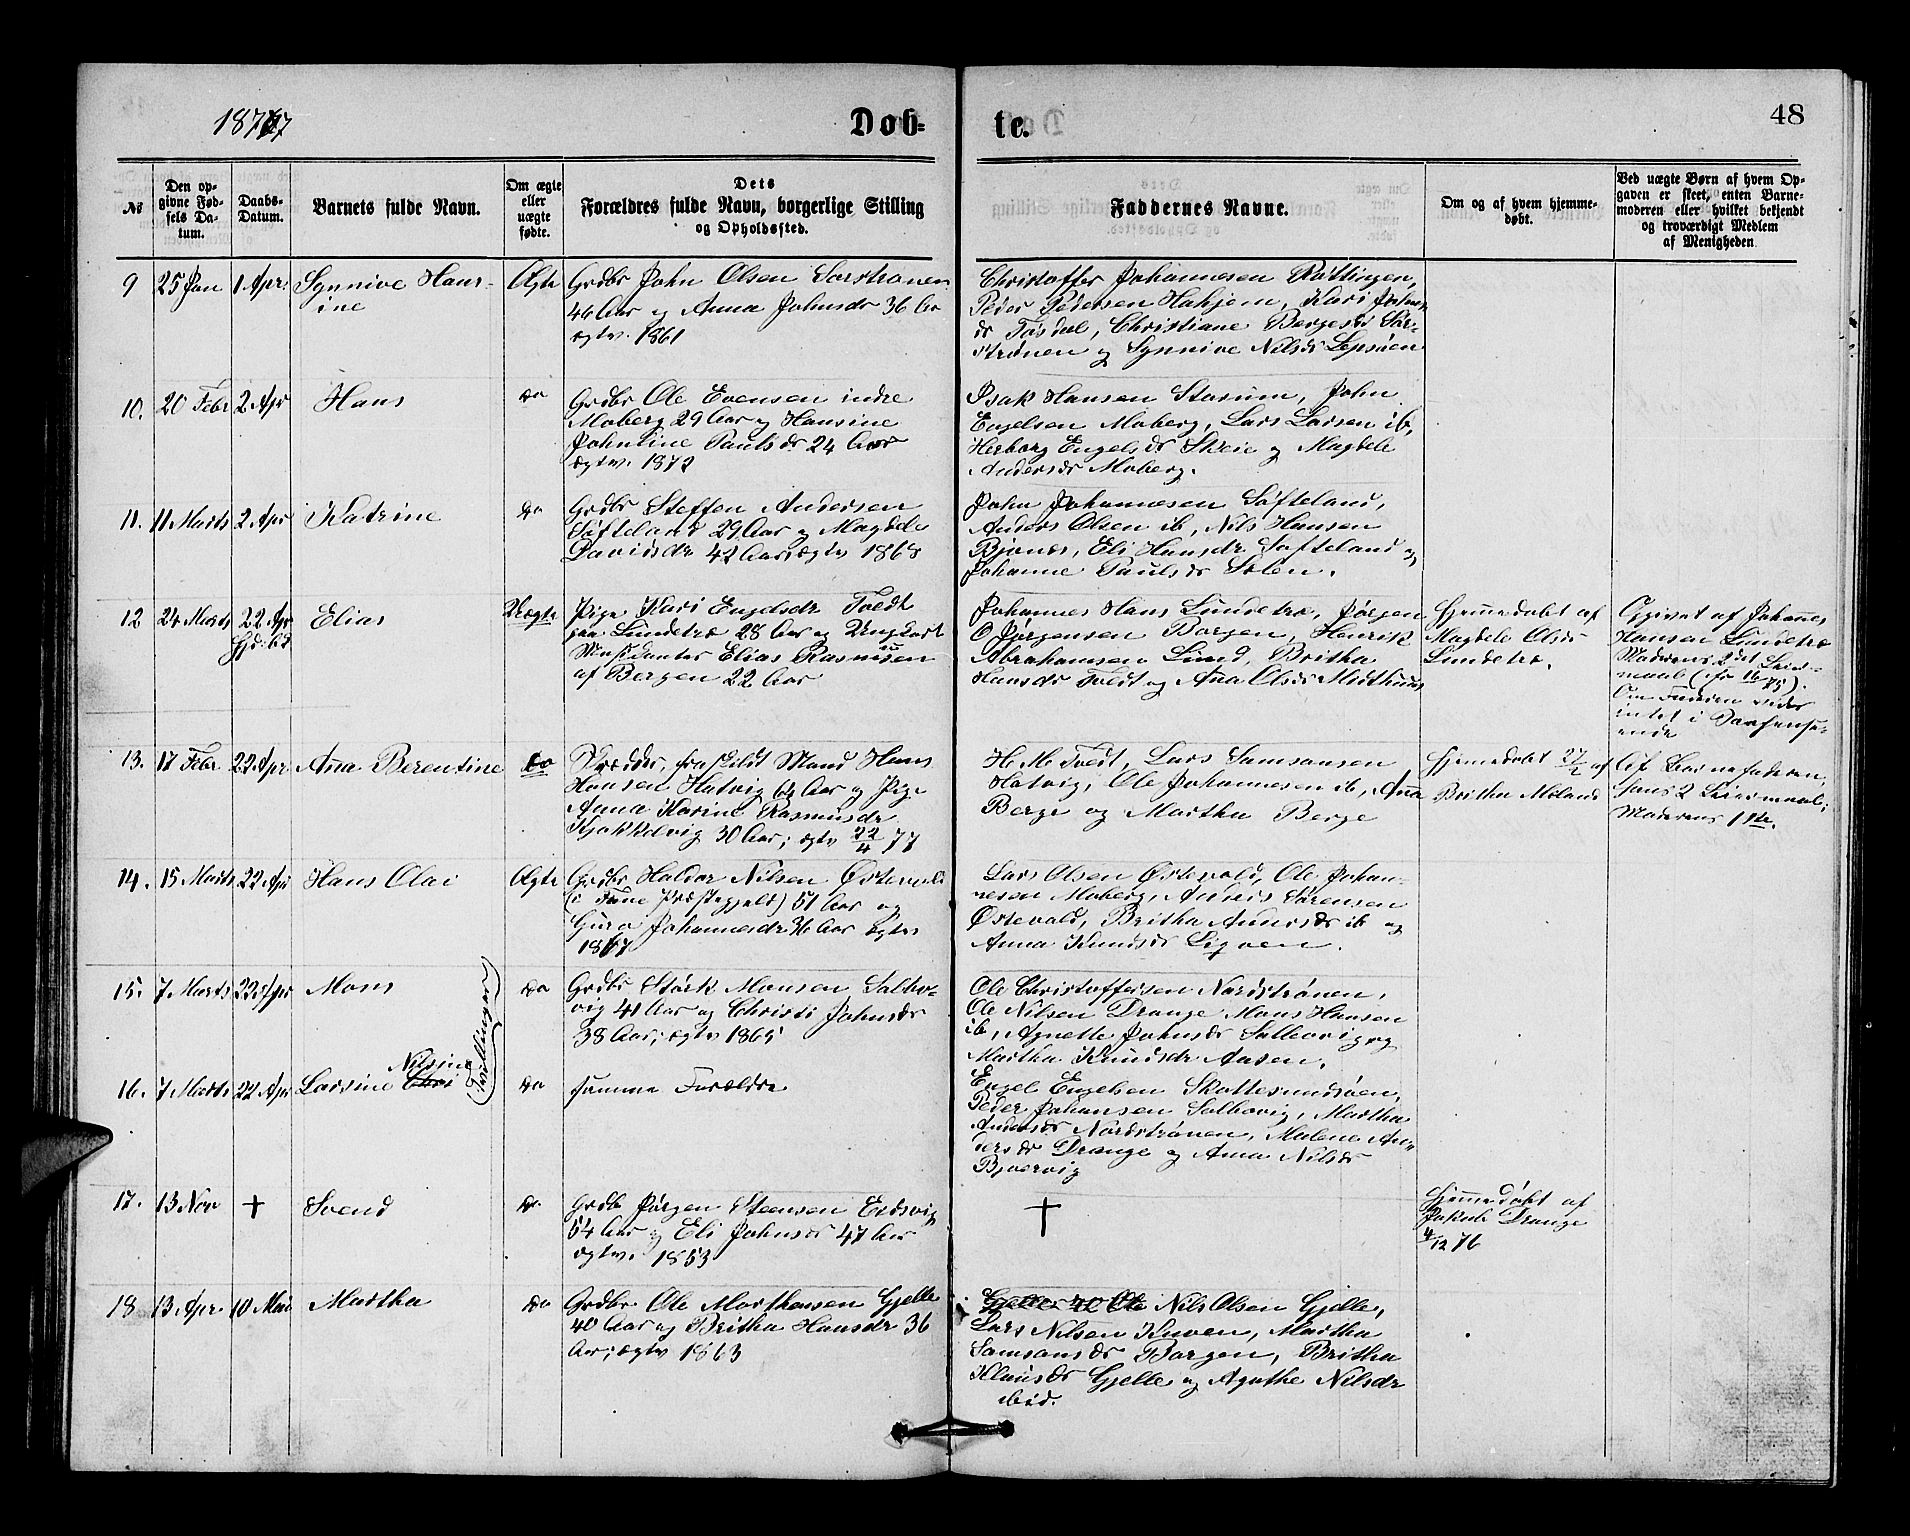 1877
Døb-
te.
48
№
Den op-
givne Fød-
sels Da-
tum.
Daabs-
Datum.
Barnets fulde Navn.
Om ægte
eller
uægte
fødte.
Dets
Forældres fulde Navn, borgerlige Stilling
og Opholdssted.
Faddernes Navne.
Om og af hvem hjemme-
døbt.
Ved uægte Børn af hvem Op-
gaven er skeet, enten Barne-
moderen eller hvilket bekjendt
og troværdigt Medlem
af Menigheden.
9 25 Jan 1 Apr. Synnive Hans-
ine
Ægte
Grdbr John Olsen Sørstrønen
46 Aar og Anna Johnsdr 36 Aar
ægtv. 1861
Christoffer Johannesen Røttingen,
Peder Pedersen Hahjem, Kari Johns
dr Tøsdal, Christiane Bergesdr Sør-
strønen og Synnive Nilsdr Lepsøen
10. 20 Febr 2 Apr Hans
do
Grdbr Ole Evensen indre
Moberg 29 Aar og Hansine
Johntine Paulsdr 24 Aar
ægtv. 1872
Isak Hansen Storum, John
Engelsen Moberg, Lars Larsen ib,
Herborg Engelsdr Skeie og Magdele
Andersdr Moberg.
11. 11 Marts 2 Apr Katrine
do
Grdbr Steffen Andersen
Søfteland 29 Aar og Magdele
Davidsdr 42 Aar; ægtv 1868
John Johannesen Søfteland,
Anders Olsen ib, Nils Hansen
Bjønes, Eli Hansdr Søfteland og
Johanne Paulsdr Solen.
12 24 Marts 22 Apr
Hjd: bd
Elias
Uægte
Pige Kari Engelsdr Tvedt
paa Lundetræ 28 Aar og Ungkarl
Musikanter Elias Rasmusen
af Bergen 22 Aar
Johannes Hans Lundetræ, Jørgen
O Jørgensen Borgen, Henrik
Abrahamsen Lund, Britha
Hansdr Tvedt og Anna Olsdr Midthuus
Hjemmedøbt af
Magdele Olsdr
Lundetræ.
Opgivet af Johannes
Hansen Lundetræ
Moderens 2det Leier-
maal (cfr 16/75).
Om Faderen vides
intet i saa Henseende
13. 17 Febr 22 Apr Anna Berentine
do
Skrædder, fraskildt Mand Hans
Hansen Hatvig 64 Aar og Pige
Anna Karine Rasmusdr
Kjøkkelvig 30 Aar; ægtv 22/4 77
H. M. Tvedt, Lars Samsonsen
Hatvig, Ole Johannesen ib, Anna
Berge og Martha Berge
Hjemmedøbt 27/2 af
Britha Moland
Af Barnefaderen,
hans 2 Leiermaal;
Moderens 1ste.
14. 15 Marts 22 Apr Hans Olai
Ægte
Grdbr Haldor Nilsen Østevold
(i Fane Præstegjeld) 51 Aar og
Guro Johannesdr 36 Aar ægtv
1867
Lars Olsen Østevold, Ole Johan-
nesen Moberg, Anders Sørensen
Østevold, Britha Andersdr ib og
Anna Knudsdr Ligven.
15. 7 Marts 22 Apr Mons
Tvillinger
do
Grdbr Størk Monsen Salbo-
vig 41 Aar og Christi Johnsdr
38 Aar; ægtv 1865
Ole Christoffersen Nordstrønen,
Ole Nilsen Drange Mons Hansen
ib, Agnette Johnsdr Salbovig og
Martha Knudsdr Aasen.
16. 7 Marts 22 Apr Larsine Chri Nilsine
do
samme Forældre
Engel Engelsen Skottesundsøen,
Peder Johansen Salbovig, Martha
Andersdr Nordstrønen, Malene An-
dersdr Drange og Anna Nilsdr
Bjørvig
17. 13 Nov † Svend
do
Grdb Jørgen Steensen Endsvig
54 Aar og Eli Johnsdr 47 Aar
ægtv. 1853
†
Hjemmedøbt af
Jakob Drange
4/12 76
18 13 Apr 10 Mai Martha
do
Grdbr Ole Marthensen Gjelle
40 Aar og Britha Hansdr 36
Aar; ægtv 1863
Gjelle 40 Ole Nils Olsen Gjelle,
Lars Nilsen Kuven, Martha
Samsonsdr Borgen, Britha
Klausdr Gjelle og Agathe Nilsdr
ibid.